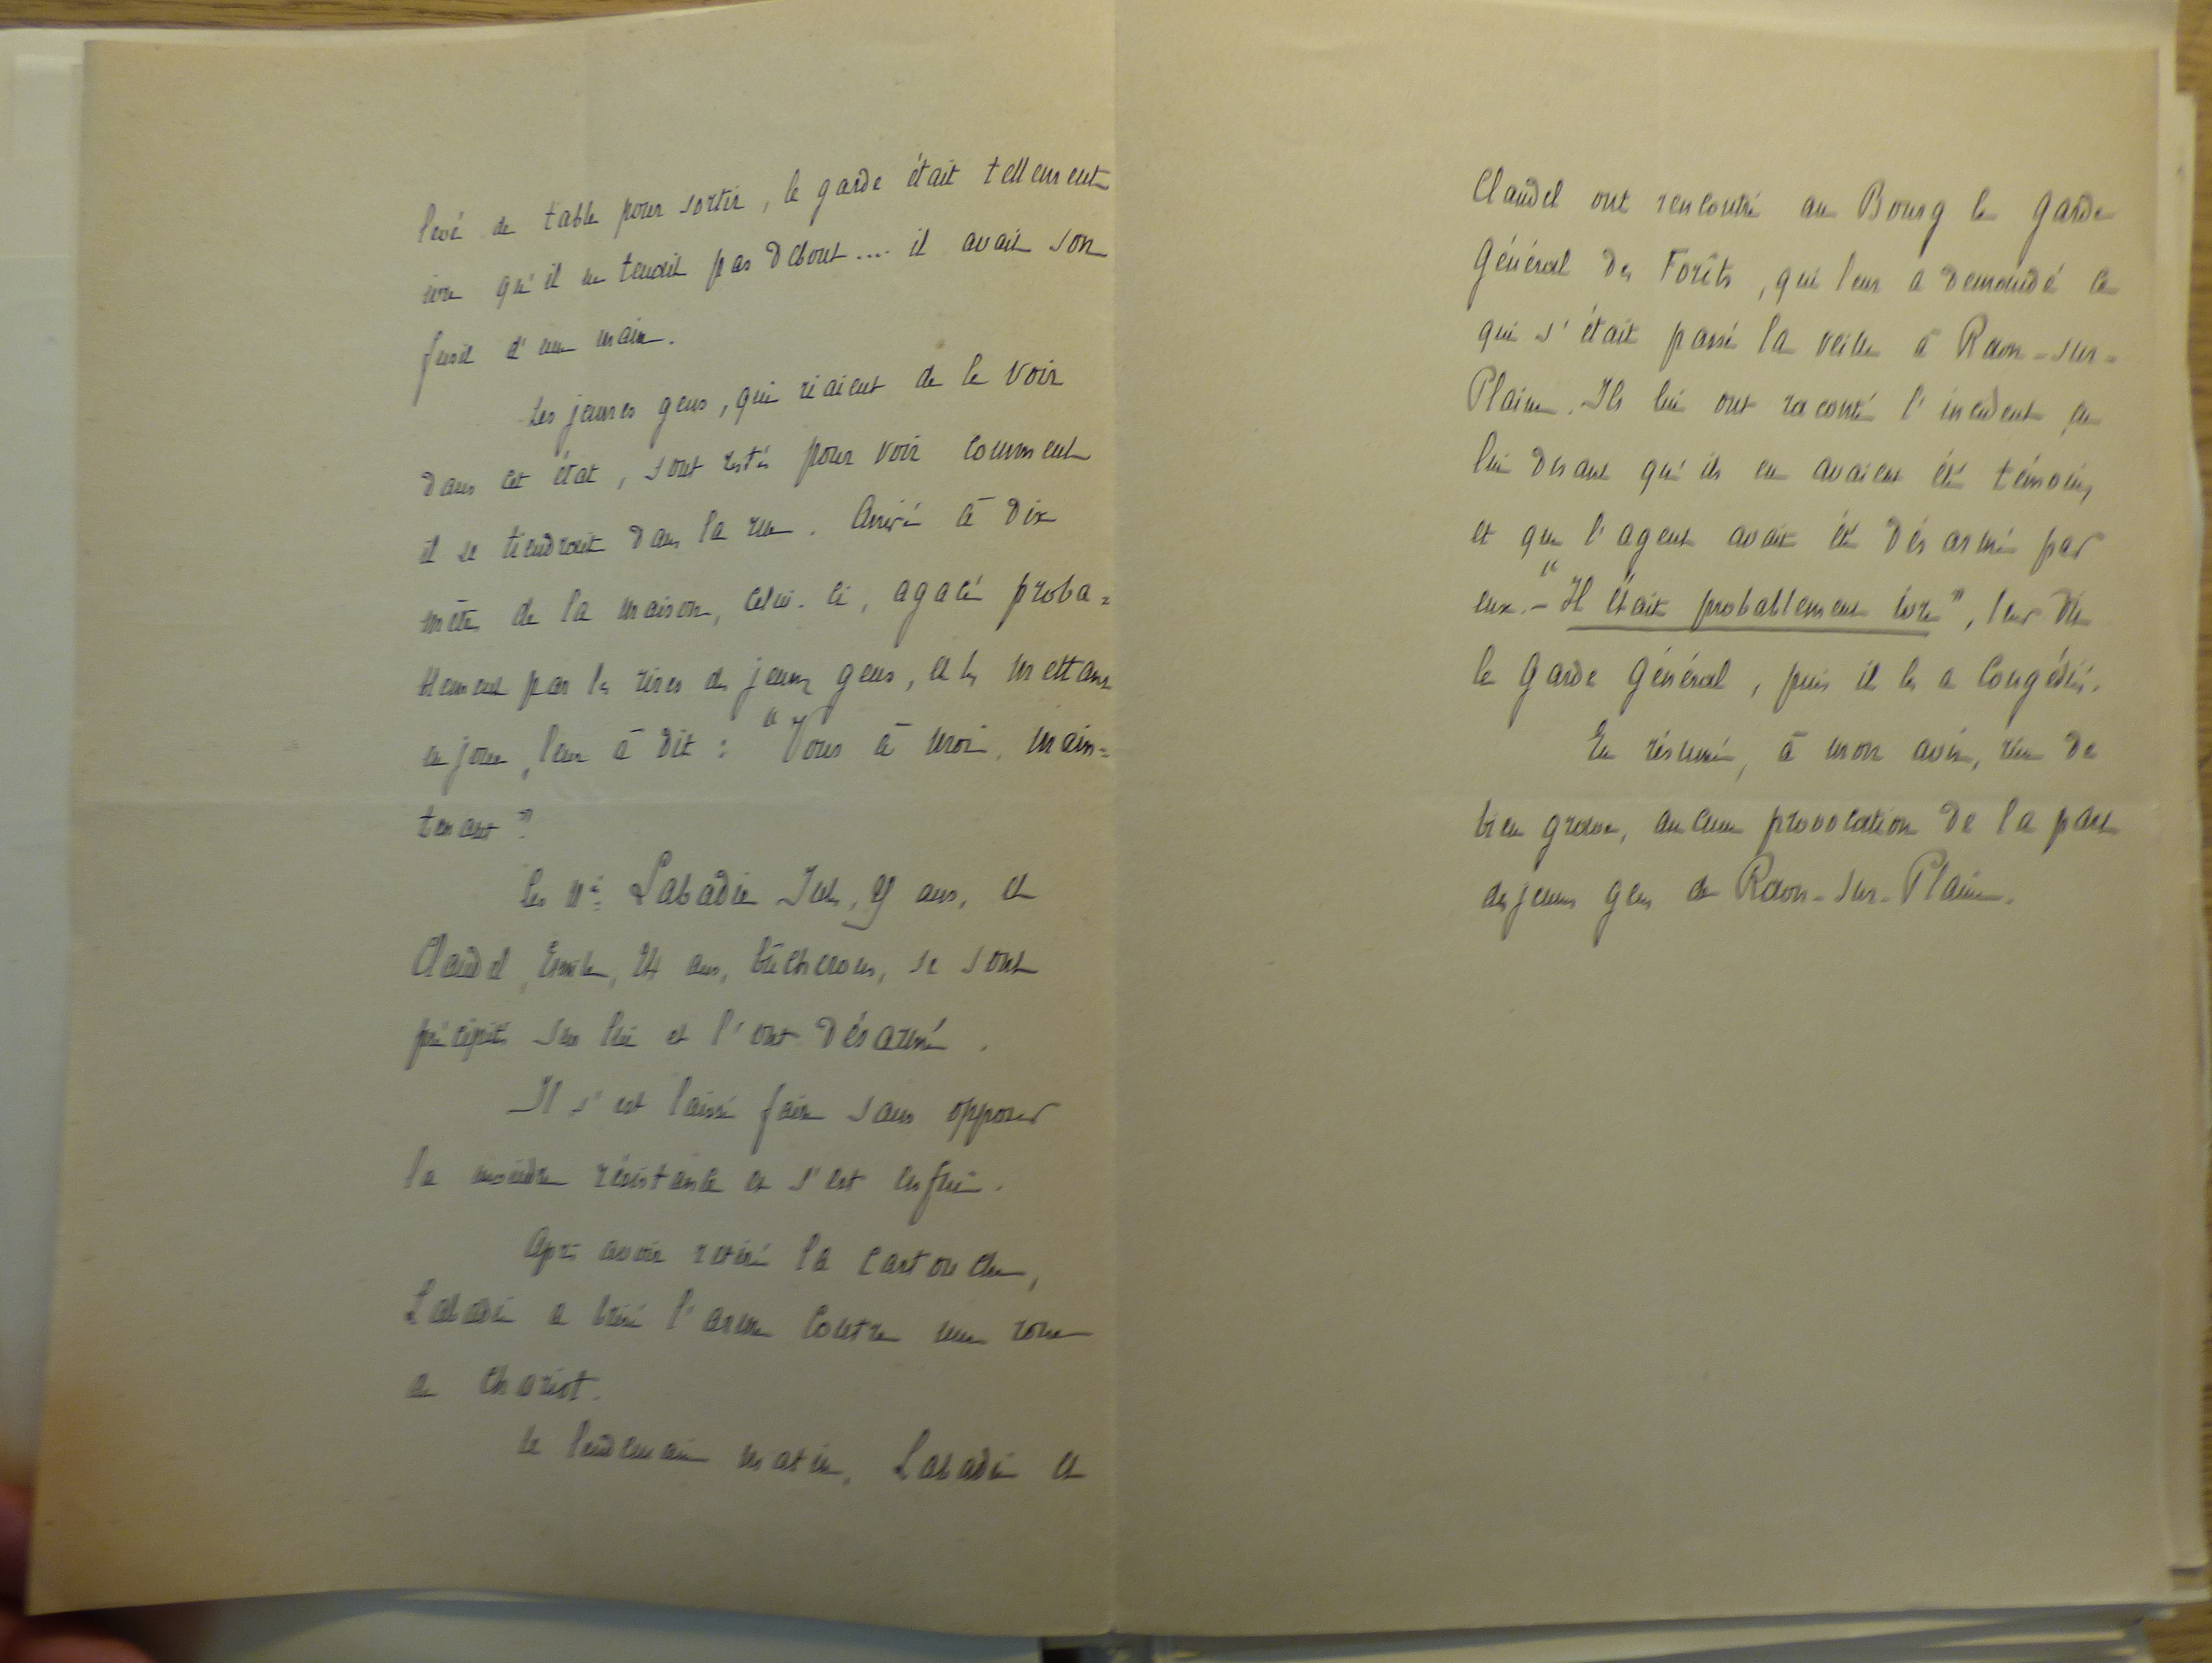 levé de table pour sortir, le garde était tellement
ivre qu'il ne tenait pas debout .... il avait son
fusil d'une main.
Les jeunes gens, qui riaient de le voir
dans cet état, sont restés pour voir comment
il se tiendrait dans la rue. Arrivé à dix
mètres de la maison, celui-ci, agacé proba=
blement par les rires des jeunes gens, et les mettant
en joue, leur à dit : "Vous à moi, main=
tenant"
Les nés Labadie Jules, ans, et
Claudel, Emile, 24 ans, bûcherons, se sont
précipités sur lui et l'ont désarmé.
Il s'est laissé faire sans opposer
la moindre résistance et s'est enfui.
Après avoir retiré la cartouche,
Labadie a brisé l'arme contre une roue
de chariot.
Le lendemain matin, Labadie et
Claudel ont rencontré au Bourg le garde
Général des Forêts, qui leur a demandé ce
qui s'était passé la veille à Raon-sur-
Plaine. Ils lui ont raconté l'incident en
lui disant qu'ils en avaient été témoins,
et que l'agent avait été désarmé par
eux. - "Il était probablement ivre", leur dit
le Garde Général, puis il les a congédiés.
En résumé, à mon avis, rien de
bien grave, aucune provocation de la part
des jeunes gens de Raon-sur-Plaine.